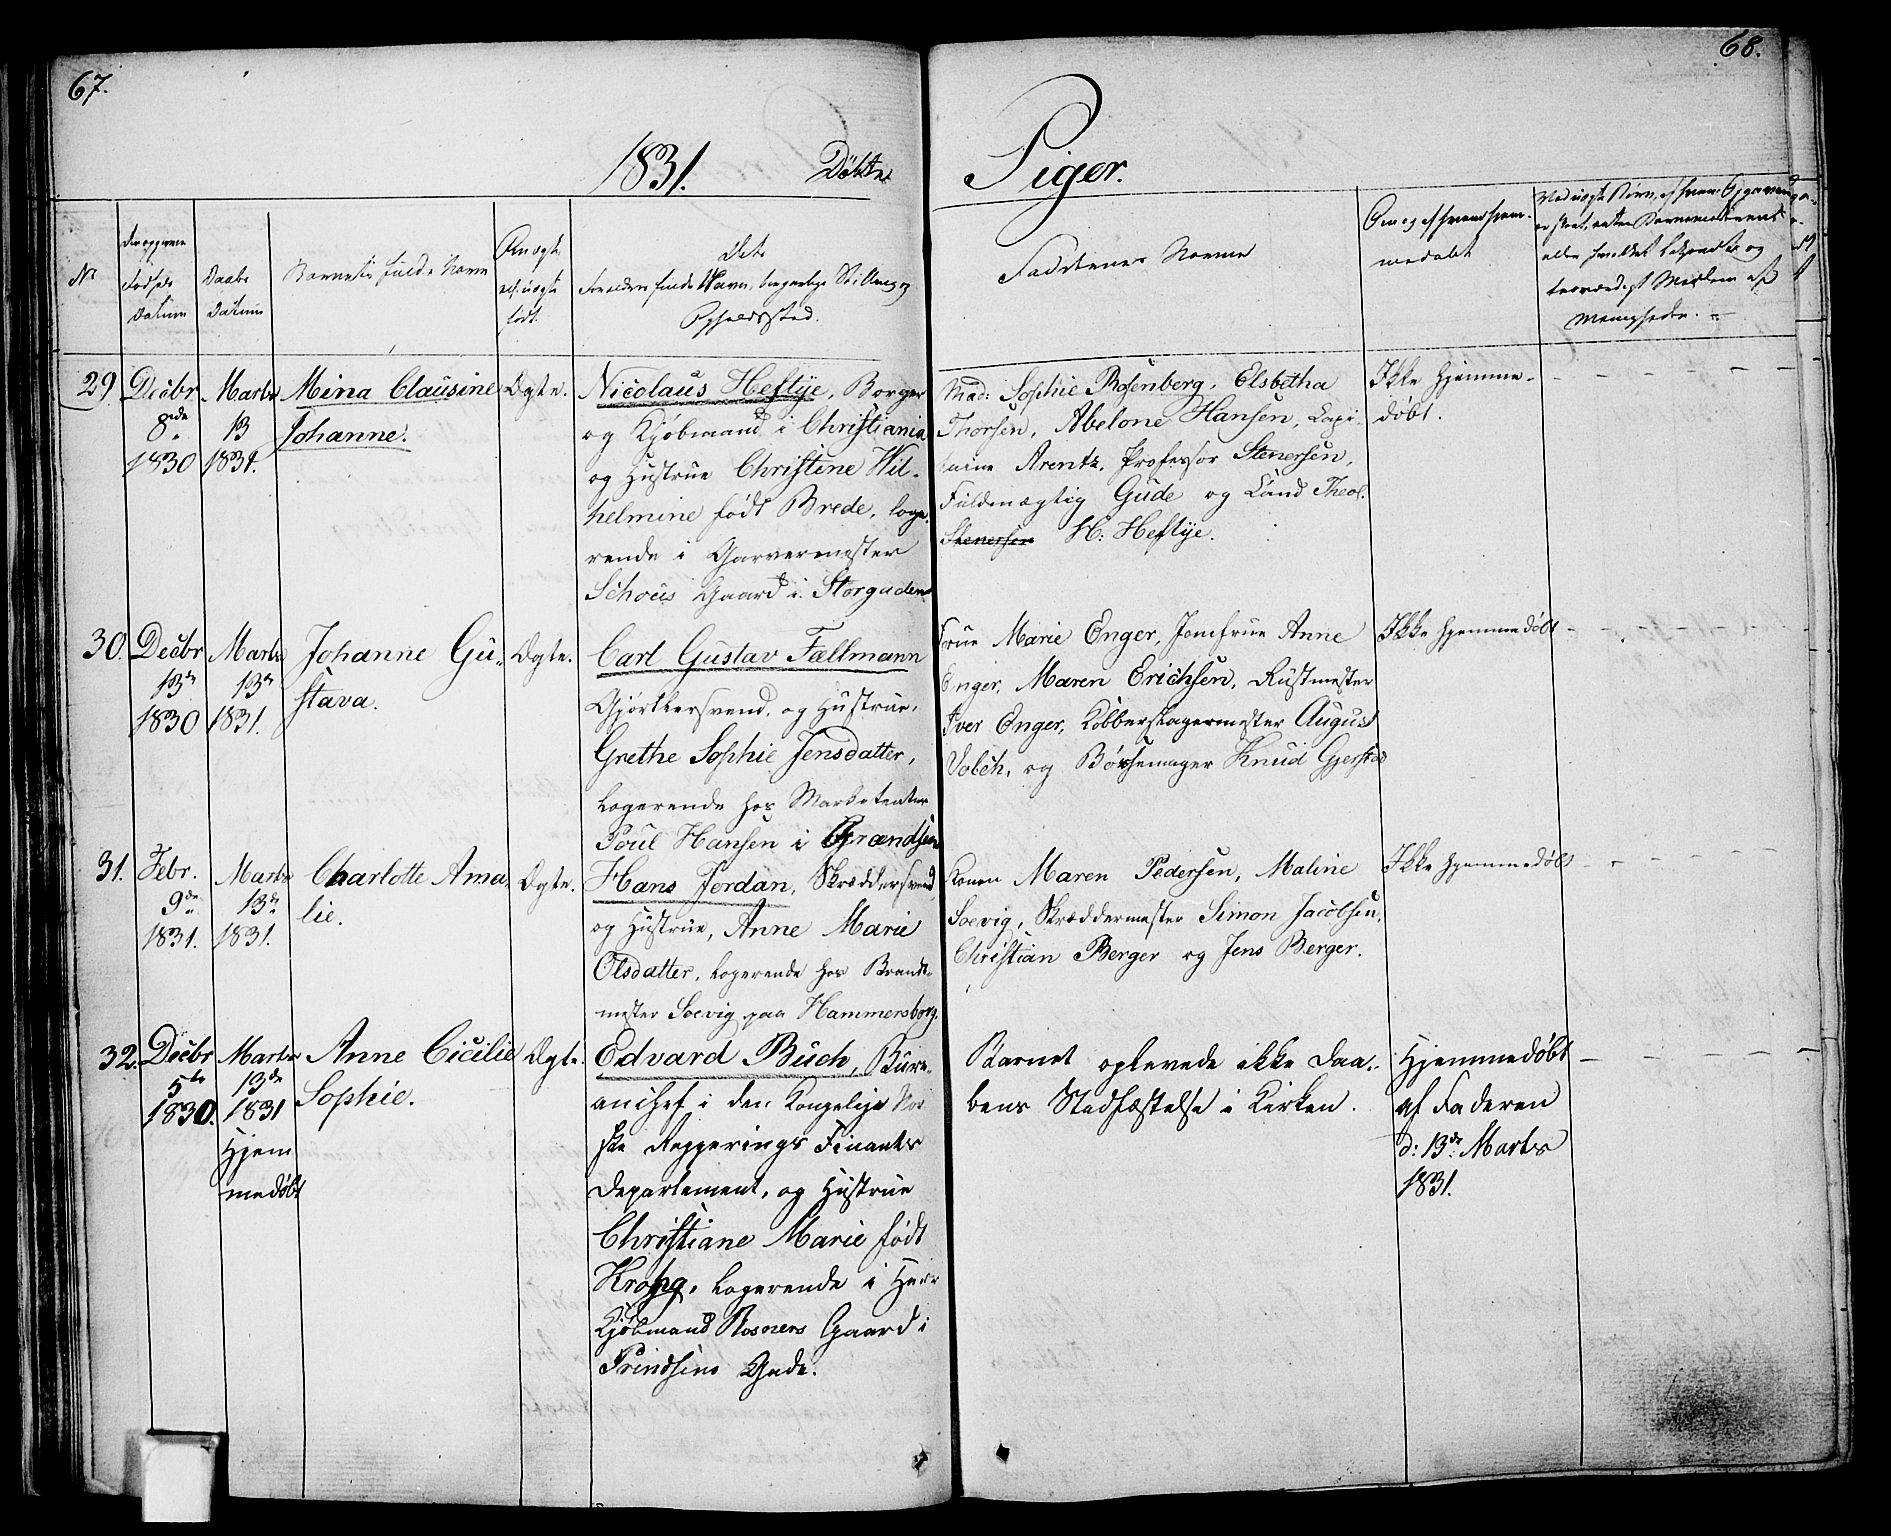 67.
68.
1831. Døbte
Piger.
No
Fødsels
Datum
Daabs
Datum
Barnets fulde Navn
født.
Det
Opholdssted.
Faddernes Navne
29. Decbr 8nde 1830
Marts 13 1831.
Mina Clausine
Johanne.
Ægte.
Nicolaus Heftye, Borger
og Kjøbmand i Christiania
og Hustrue Christine Wil-
helmine født Brede, loge-
rende i Garvermester
Schous Gaard i Storgaden
Mad: Sophie Rosenberg, Elsbetha
Thorsen, Abelone Hansen, Capi-
taine Arentz, Professor Stenersen,
Fuldmægtig Gude og Cand Theol.
Stenersen H: Heftye.
Ikke Hjemme-
døbt.
30. Decbr 13de 1830
Marts 13de 1831.
Johanne Gu-
stava.
Ægte.
Carl Gustav Fællmann
Gjørtlersvend, og Hustrue,
Grethe Sophie Jensdatter,
Logerende hos Marketenter
Poul Hansen i Grændsen
Frue Marie Enger, Jomfrue Anne
Enger, Maren Erichsen, Rustmester
Iver Enger, Kobberslagermester August
og Bøssemager Knud Gjerstad
Ikke Hjemmedøbt
31. Febr. 9de 1831.
Marts 13de 1831.
Charlotte Ama-
lie.
Ægte.
Hans Jordan, Skræddersvend
og Hustrue, Anne Marie
Olsdatter, Logerende hos Brand-
mester Soevig paa Hammersborg.
Konen Maren Pedersen, Maline
Soevig, Skræddermester Simon Jacobsen,
Christian Berger og Jens Berger.
Ikke Hjemmedøbt
32. Decbr 5te 1830.
Marts 13de 1831
Hjem
medøbt
Anne Cicilie
Sophie.
Ægte.
Edvard Buch, Bure-
auchef i den Kongelige Nor
ske Regjerings Finants
Departement, og Hustrue
Christiane Marie født
Krohg, Logerende i Herr
Kjøbmand Rosners Gaard i
Prindsens Gade.
Barnet oplevede ikke Daa-
bens Stadfæstelse i Kirken.
Hjemmedøbt
af Faderen
d: 13de Marts
1831.